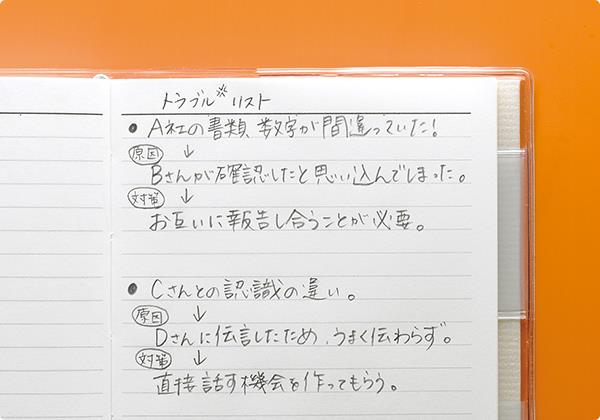 トラブル※リスト
● A社の書類、数字が間違っていた!
原因 ↓
Bさんが確認したと思い込んでしまった。
対策 ↓
お互いに報告し合うことが必要。
● Cさんとの認識の違い。
原因 ↓
Dさんに伝言したため、うまく伝わらず。
対策 ↓
直接話す機会を作ってもらう。